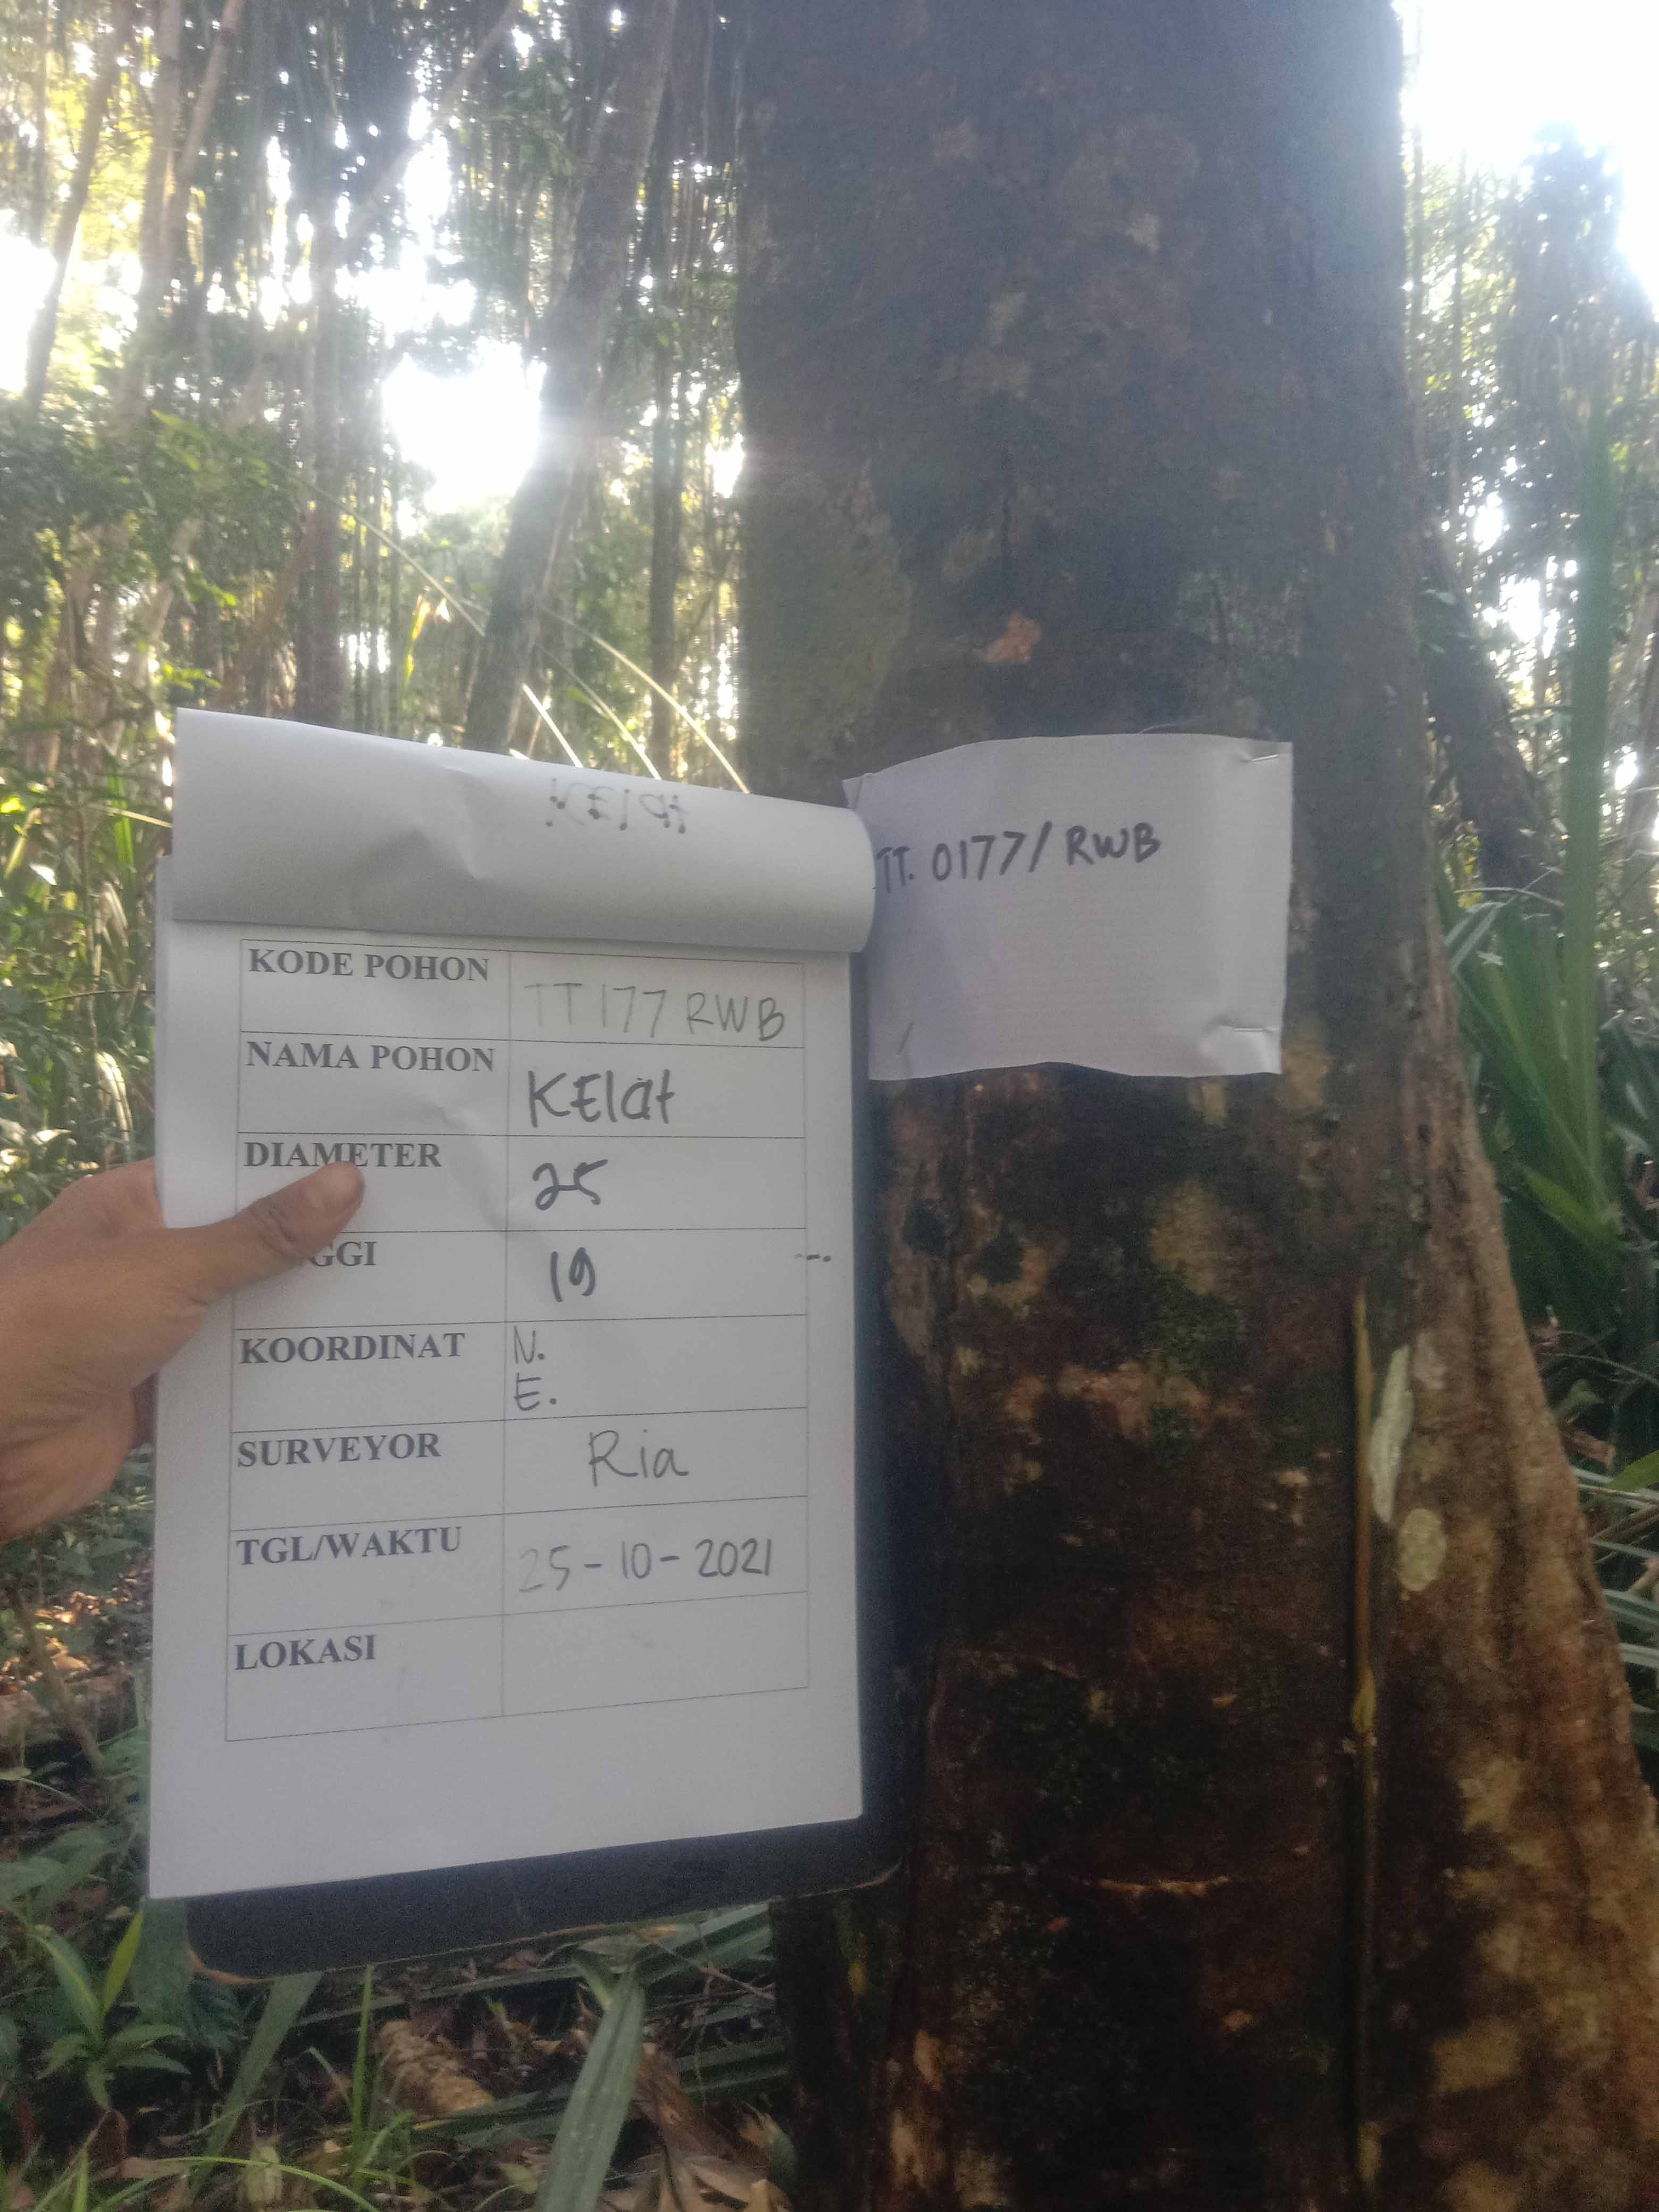 KElat
TT. 0177/ RWB
KODE POHON TT 177 RWB
NAMA POHON KElat
DIAMETER 25
GGI 19
KOORDINAT N.
E.
SURVEYOR Ria
TGL/WAKTU 25-10-2021
LOKASI